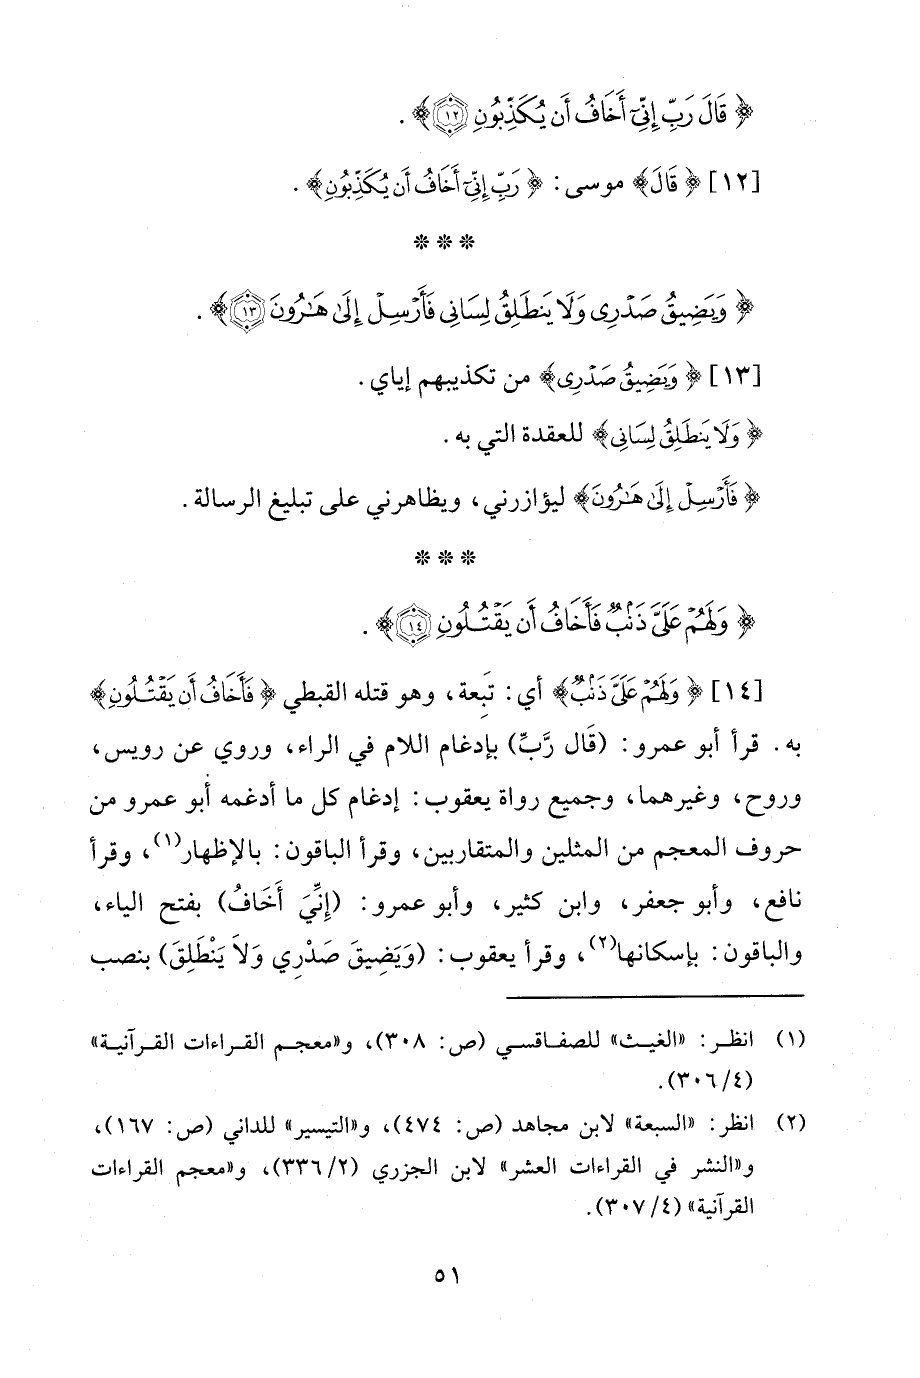 ﴿ قَالَ رَبِّ إِنِّىٓ أَخَافُ أَن يُكَذِّبُونِ ١٢﴾ .
[١٢] ﴿ قَالَ﴾ موسى: ﴿ رَبِّ إِنِّىٓ أَخَافُ أَن يُكَذِّبُونِ﴾ .
* * *
﴿ وَيَضِيقُ صَدْرِى وَلَا يَنطَلِقُ لِسَانِى فَأَرْسِلْ إِلَىٰ هَٰرُونَ ١٣﴾ .
[١٣] ﴿ وَيَضِيقُ صَدْرِى﴾ من تكذيبهم إياي .
﴿ وَلَا يَنطَلِقُ لِسَانِى﴾ للعقدة التي به .
﴿ فَأَرْسِلْ إِلَىٰ هَٰرُونَ﴾ ليؤازرني، ويظاهرني على تبليغ الرسالة .
* * *
﴿ وَلَهُمْ عَلَىَّ ذَنۢبٌ فَأَخَافُ أَن يَقْتُلُونِ ١٤﴾ .
[١٤] ﴿ وَلَهُمْ عَلَىَّ ذَنۢبٌ﴾ أي: تَبِعة، وهو قتله القبطي ﴿ فَأَخَافُ أَن يَقْتُلُونِ﴾
به. قرأ أبو عمرو: (قَال رَّبِّ) بإدغام اللام في الراء، وروي عن رويس،
وروح، وغيرهما، وجميع رواة يعقوب: إدغام كل ما أدغمه أبو عمرو من
حروف المعجم من المثلين والمتقاربين، وقرأ الباقون: بالإظهار(١)، وقرأ
نافع، وأبو جعفر، وابن كثير، وأبو عمرو: (إِنِّيَ أَخَافُ) بفتح الياء،
والباقون: بإسكانها(٢)، وقرأ يعقوب: (وَيَضِيقَ صَدْرِي وَلاَ يَنْطَلِقَ) بنصب
(١) انظر: «الغيث» للصفاقسي (ص: ٣٠٨)، و«معجم القراءات القرآنية»
(٤/ ٣٠٦).
(٢) انظر: «السبعة» لابن مجاهد (ص: ٤٧٤)، و«التيسير» للداني (ص: ١٦٧)،
و«النشر في القراءات العشر» لابن الجزري (٢/ ٣٣٦)، و«معجم القراءات
القرآنية» (٤/ ٣٠٧).
٥١